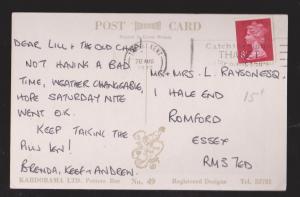 POST CARD
DEAR LILL & THE OLD CHAP
NOT HAVING A BAD
TIME, WEATHER CHANGEABLE,
HOPE SATURDAY NITE
WENT OK.
KEEP TAKING THE
BRENDA, KEEF & ANDREW.
MR & MRS. L. RAYSON ESQ.
1 HALE END
ROMFORD
ESSEX
RM3 7ED
15p
KARDORAMA LTD. Potters Bar No. 49 Registered Designs Tel. 52781